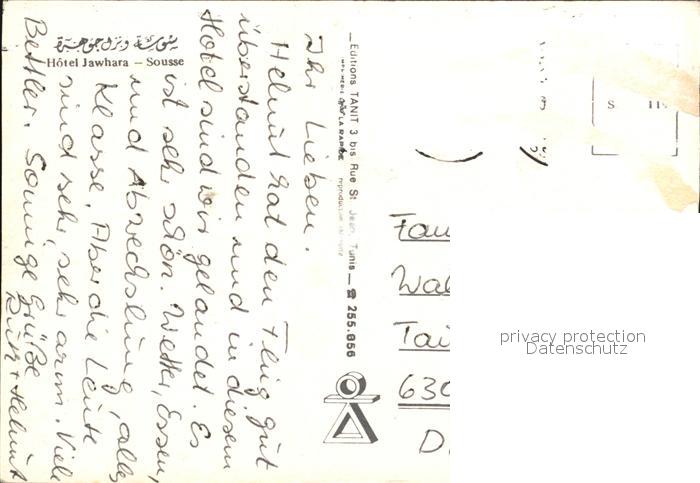 سوسة
Hôtel Jawhara – Sousse
Ihr Lieben.
Helmut hat den Flug gut
überstanden und in diesem
Hotel sind wir gelandet. Es
ist sehr schön. Wetter, Essen,
und Abwechslung, alles
Klasse. Aber die Leute
sind sehr, sehr arm. Viele
Bettler. Sonnige Grüße
+ Helmut
— Editions TANIT 3 bis Rue St Jean, Tunis — ☎ 255.656
LA RAPIDE reproduction
Fam
Wal
Tai
630
D.
privacy protection
Datenschutz